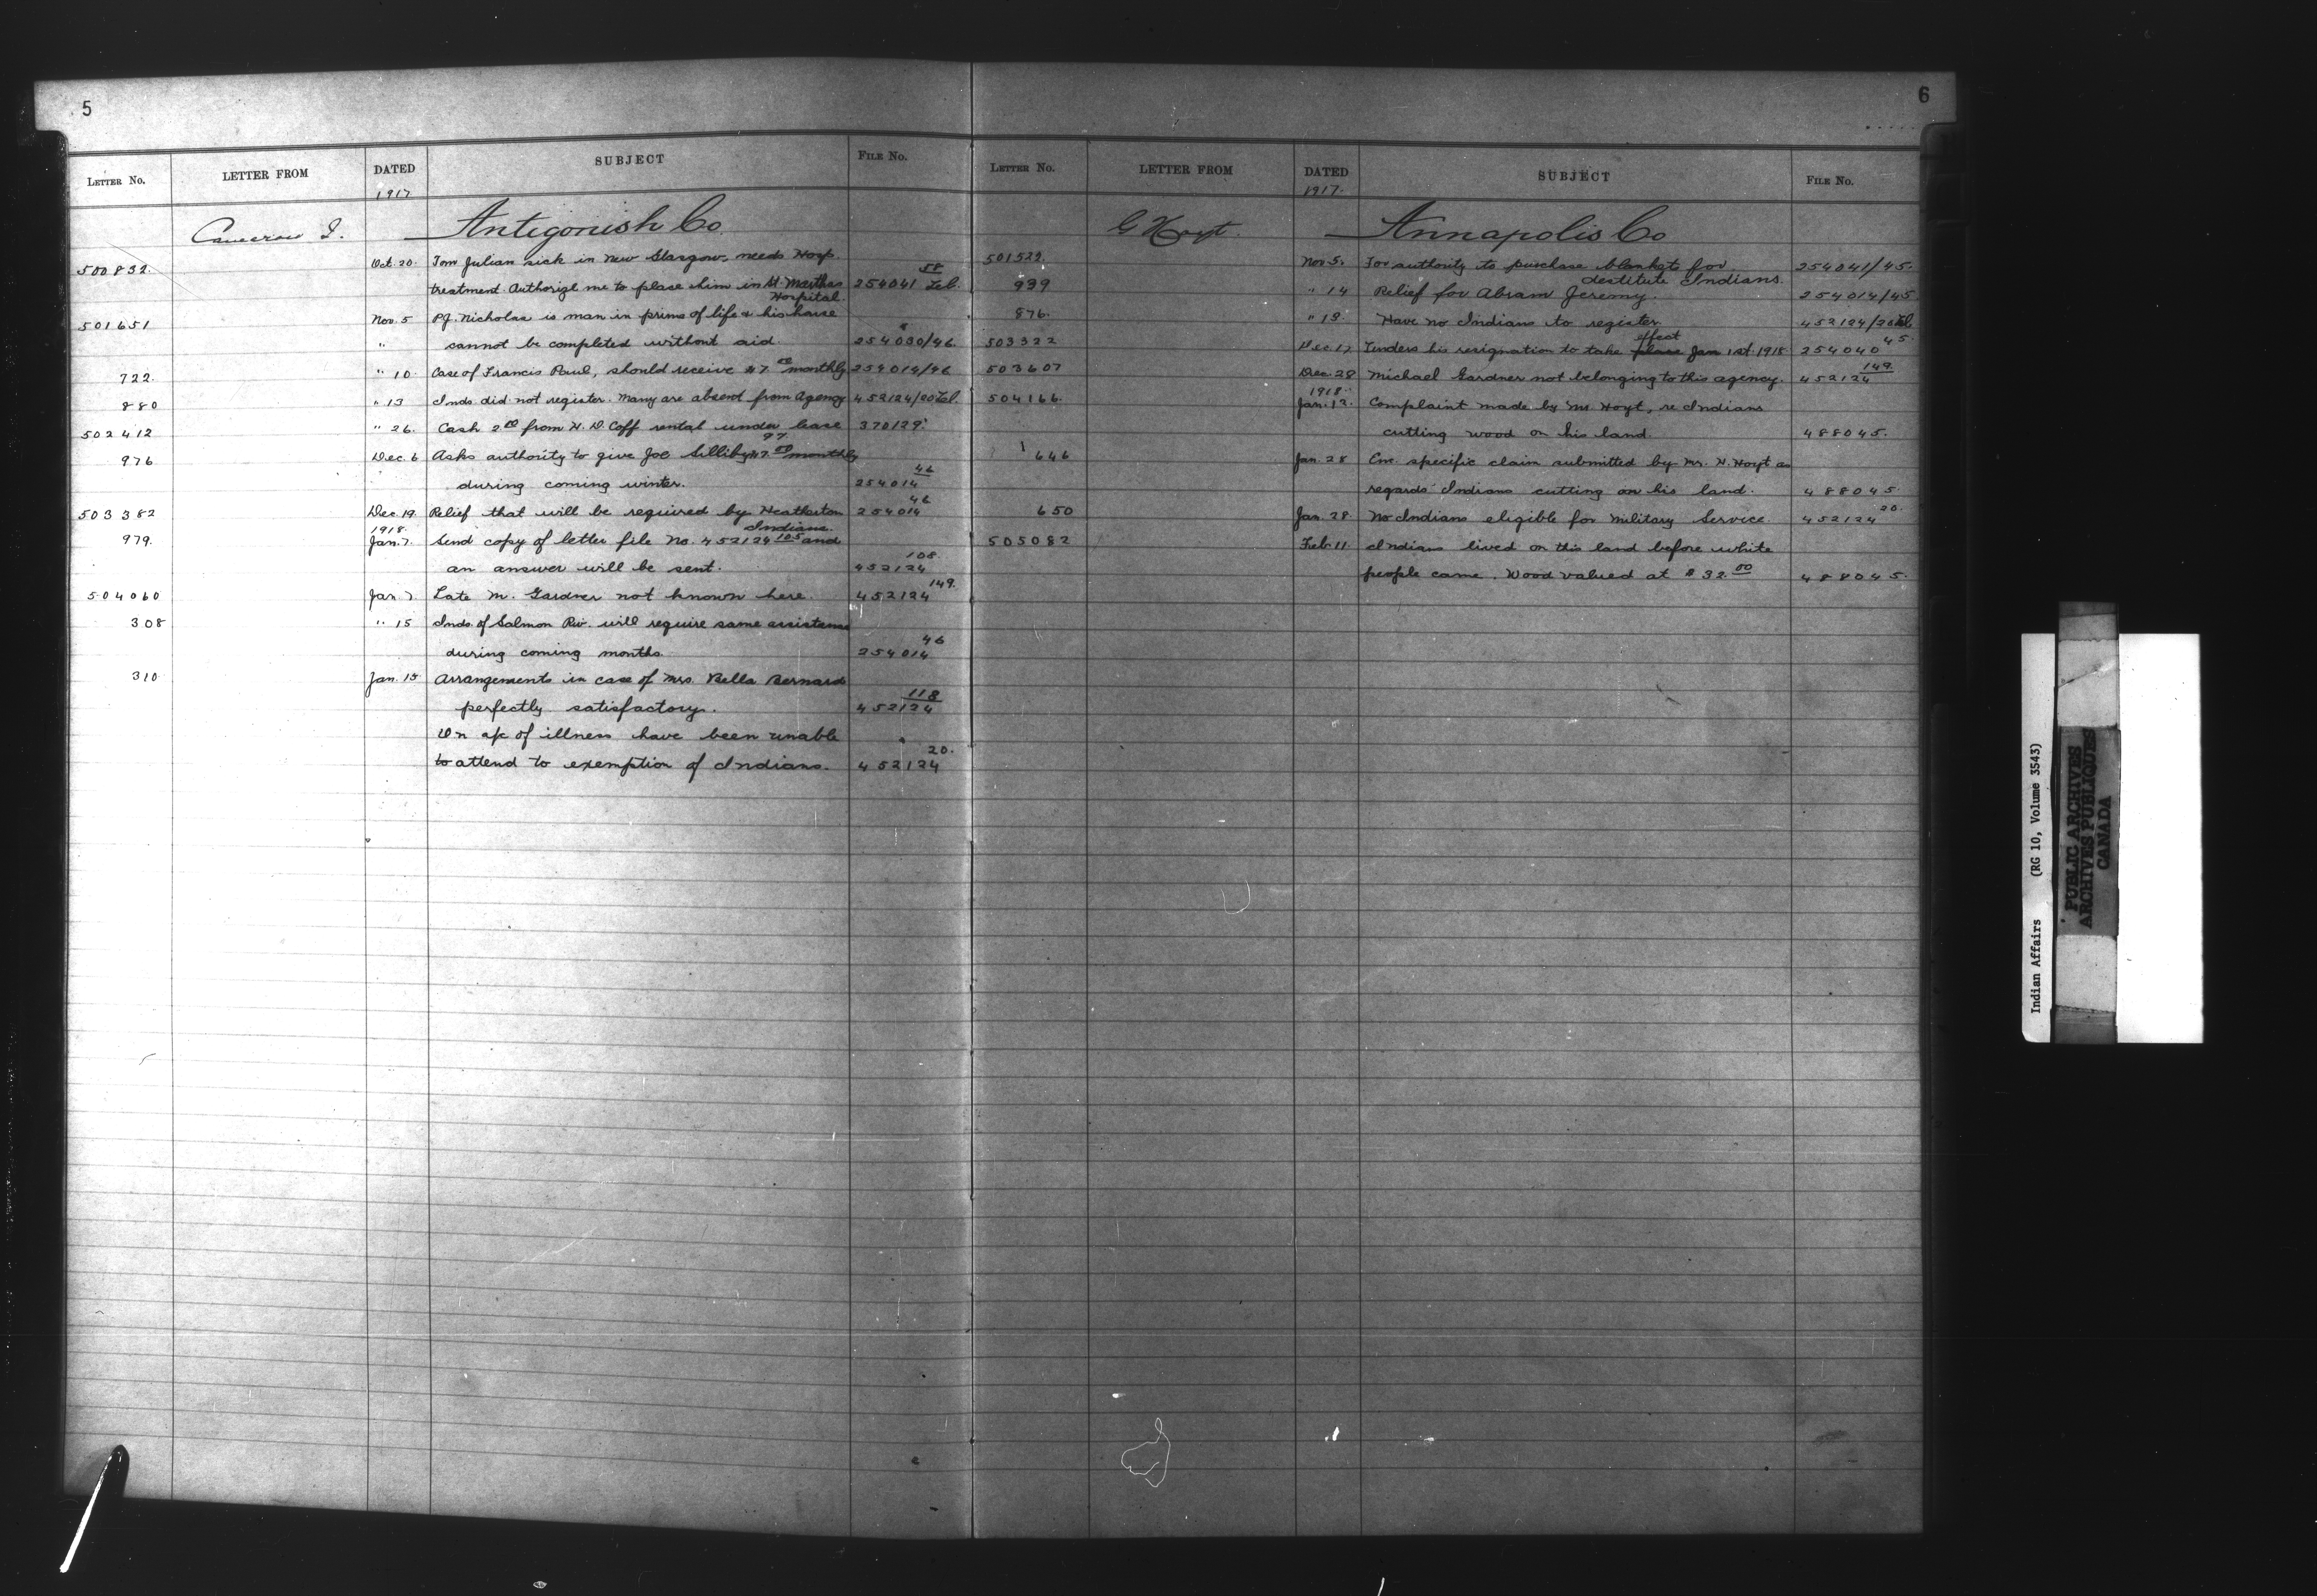 5
LETTER NO. LETTER FROM DATED SUBJECT FILE NO.
1917
Cameron J. Antigonish Co.
500832. Oct. 20. Tom Julian sick in New Glasgow, needs Hosp.
treatment. Authorize me to place him in St. Marthas 254041 58 Tel.
Hospital.
501651 Nov. 5 P.J. Nicholas is man in prime of life & his house
" cannot be completed without aid. 254030/46.
722. " 10. Case of Francis Paul, should receive $7.00 monthly 254014/46
880 " 13 Inds. did not register. Many are absent from Agency 452124/20 Tel.
502412 " 26. Cash 2.00 from H. D. Goff rental under lease 97 370129.
976 Dec. 6 Asks authority to give Joe Silliby $7.00 monthly
during coming winter. 254014 46
503382 Dec. 19. Relief that will be required by Heatherton 254014 46
1918. Indians.
979. Jan. 7. Send copy of letter file No. 452124 105 and
an answer will be sent. 452124 108.
504060 Jan. 7. Late M. Gardner not known here. 452124 149.
308 " 15 Inds. of Salmon Riv. will require same assistance
during coming months. 254014 46
310 Jan. 15 Arrangements in case of Mrs. Bella Bernard
perfectly satisfactory. 452124 118
On a/c of illness have been unable
to attend to exemption of Indians. 452124 20.
6
LETTER NO. LETTER FROM DATED SUBJECT FILE NO.
1917.
G Hoyt. Annapolis Co
501522. Nov 5. For authority to purchase blankets for 254041/45.
destitute Indians.
939 " 14 Relief for Abram Jeremy. 254014/45
876. " 13. Have no Indians to register. 452124/20 Tel.
503322 Dec. 17 Tenders his resignation to take place effect Jan 1st. 1918 254040 45.
503607 Dec. 28 Michael Gardner not belonging to this agency. 452124 149.
1918.
504166. Jan. 12. Complaint made by Mr Hoyt, re Indians
cutting wood on his land. 488045.
646 Jan. 28 Enc. specific claim submitted by Mr. H. Hoyt as
regards Indians cutting on his land. 488045.
650 Jan. 28. No Indians eligible for Military Service. 452124 20.
505082 Feb. 11. Indians lived on this land before white
people came. Wood valued at $32.00 488045.
Indian Affairs (RG 10, Volume 3543)
PUBLIC ARCHIVES
ARCHIVES PUBLIQUES
CANADA